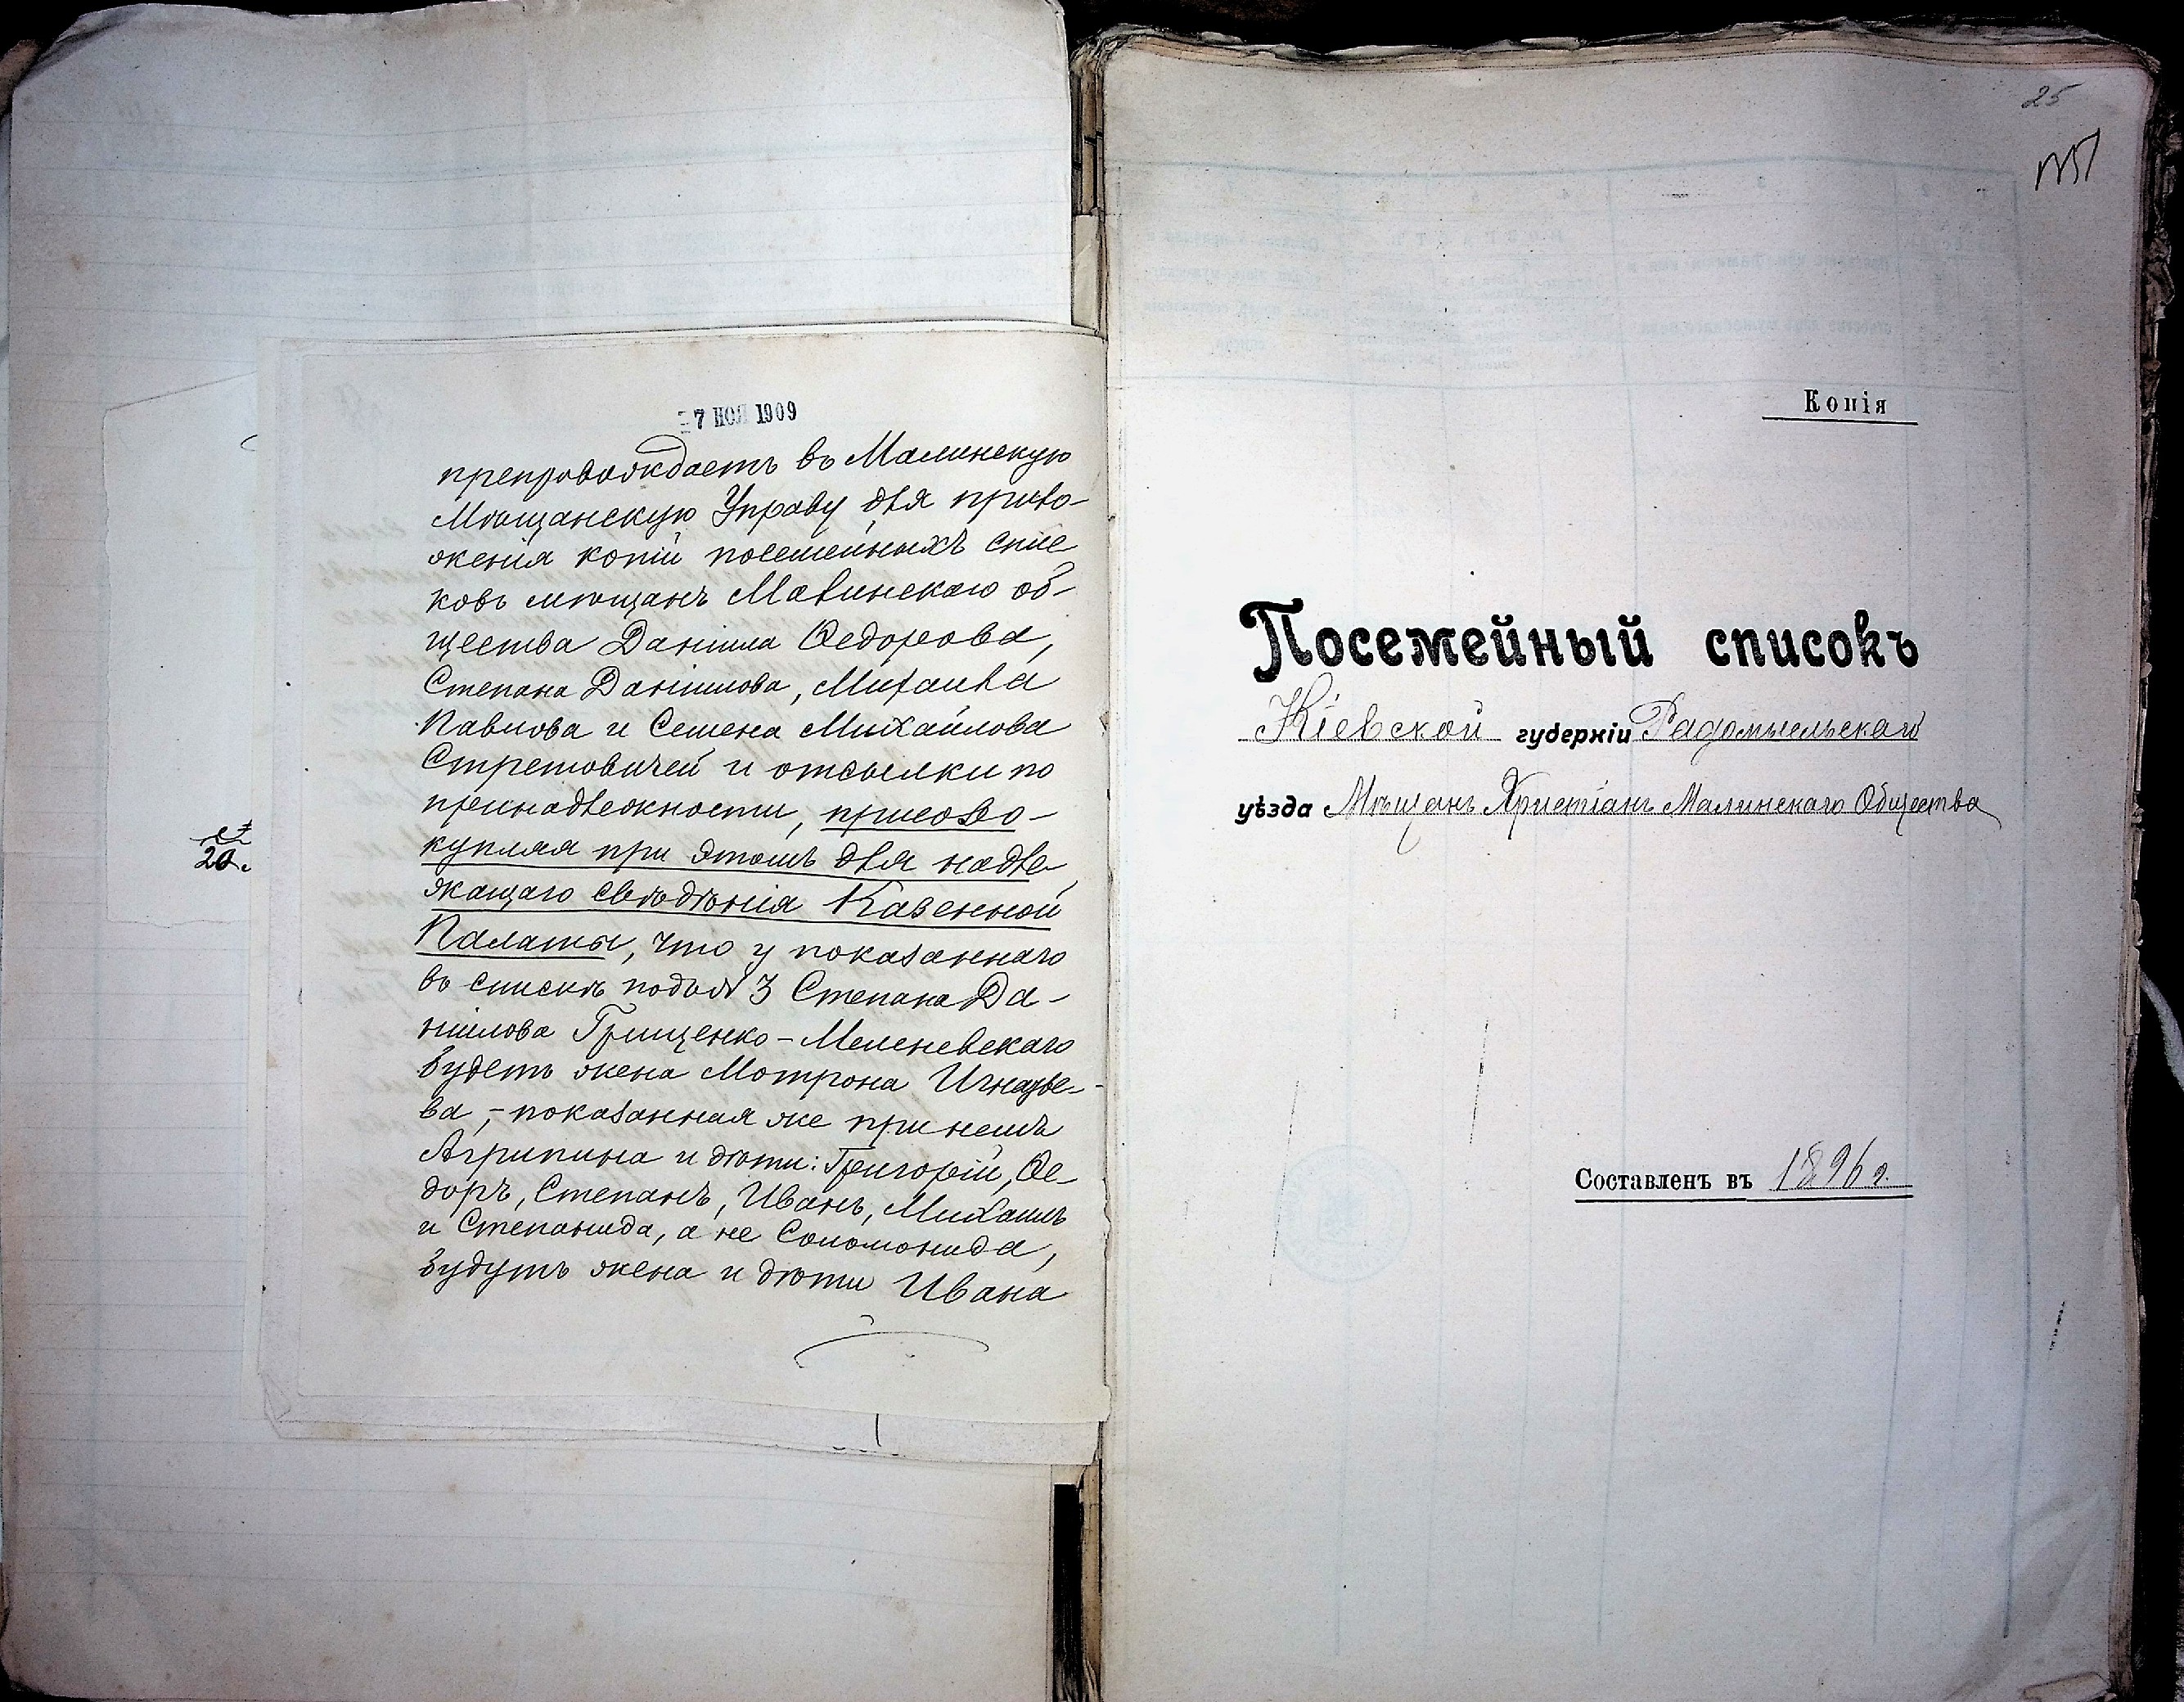 7 НОЯ 1909
препровождаетъ въ Малинскую
Мѣщанскую Управу для прило-
женія копій посемейныхъ спис
ковъ мѣщанъ Малинскаго об-
щества Даніила Ѳедорова,
Степана Даніилова, Михаила
Павлова и Семена Михайлова
Стретовичей и отсылки по
принадлежности, присово-
купляя при этомъ для надле
жащаго свѣдѣнія Казенной
Палаты, что у показаннаго
въ спискѣ подъ № 3 Степана Да-
ніилова Грищенко-Меленевскаго
будетъ жена Мотрона Игнатье-
ва, - показанная же при немъ
Агрипина и дѣти: Григорій, Ѳе-
доръ, Степанъ, Иванъ, Михаилъ
и Степанида, а не Соломонида,
будутъ жена и дѣти Ивана
20.
25
Копія
Посемейный списокъ
Кіевской губерніи Радомысльскаго
уѣзда Мѣщанъ Христіанъ Малинскаго Общества
Составленъ въ 1896 г.